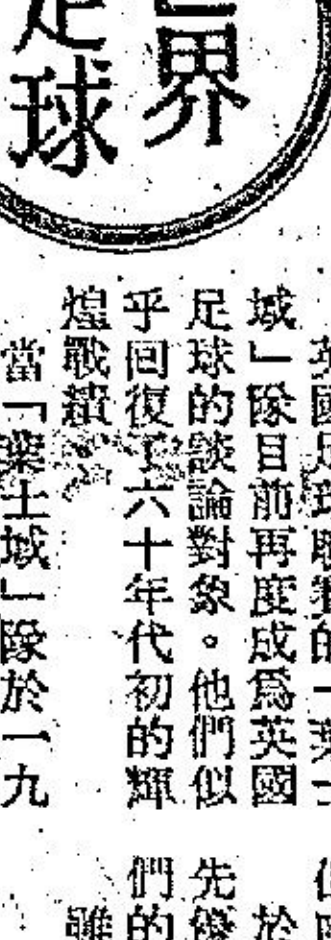 界
足球
英國足球聯賽的「葉士
域」隊目前再度成爲英國
足球的談論對象。他們似
乎回復了六十年代初的輝
煌戰績
當「葉士域」隊於一九
於
先優
們的
雖